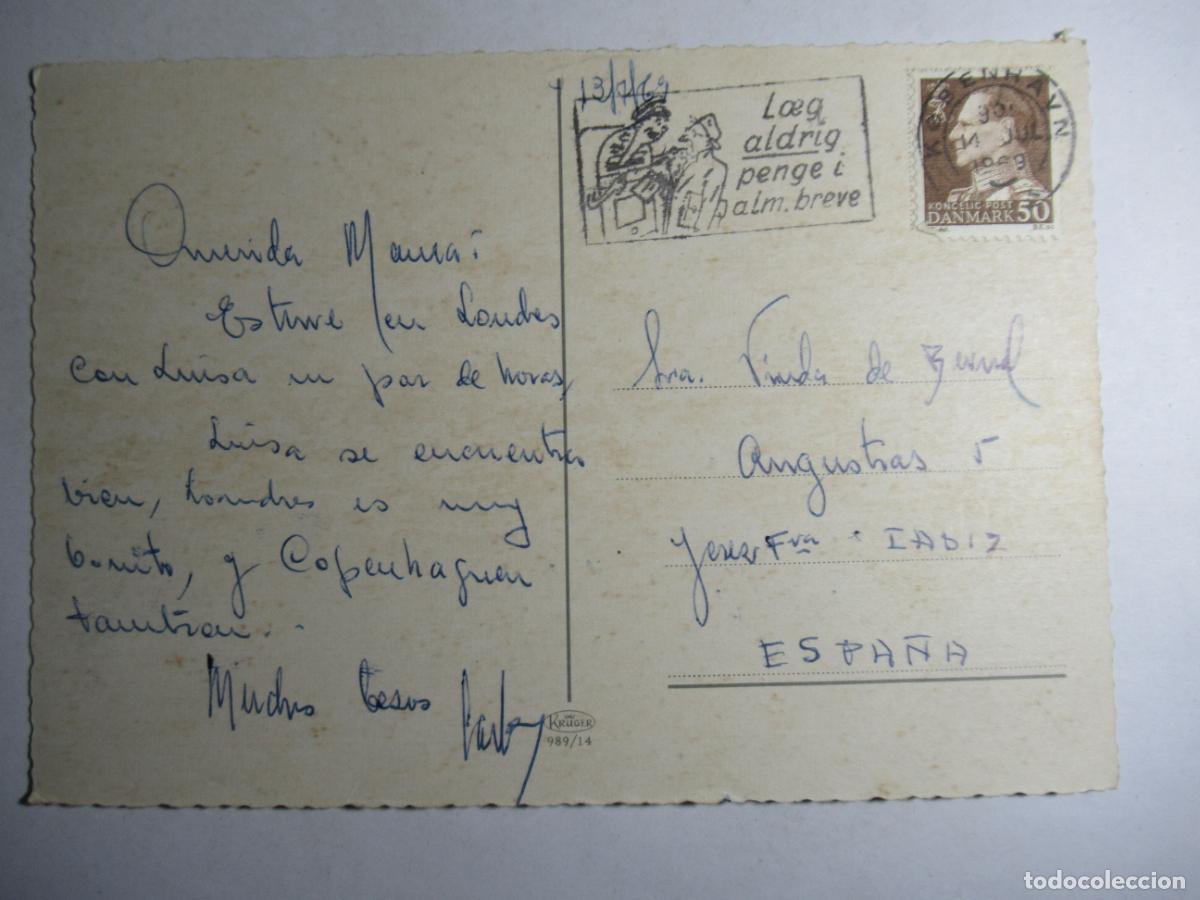 13/7/69
Læg
aldrig
penge i
alm. breve
KØBENHAVN
14 JUL
1969
KONGELIG POST
DANMARK 50
Querida Mamá:
Estuve en Londres
con Luisa un par de horas,
Luisa se encuentra
bien, Londres es muy
bonito, y Copenhaguen
tambien..
Muchos besos
Sra. Viuda de
Angustias 5
Jerez Fra CADIZ
ESPAÑA
KRÜGER
989/14
todocoleccion